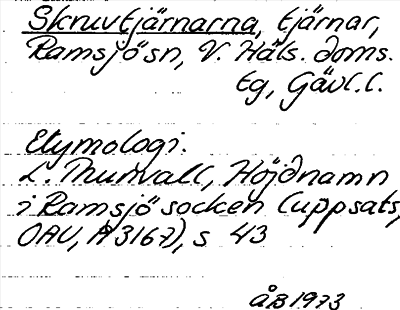 Skruvtjärnarna, tjärnar,
Ramsjö sn, V. Häls. doms.
tg, Gävl. l.
Etymologi.
L. Thunvall, Höjdnamn
i Ramsjö socken (uppsats,
OAU, A 3167), s 43
åB 1973